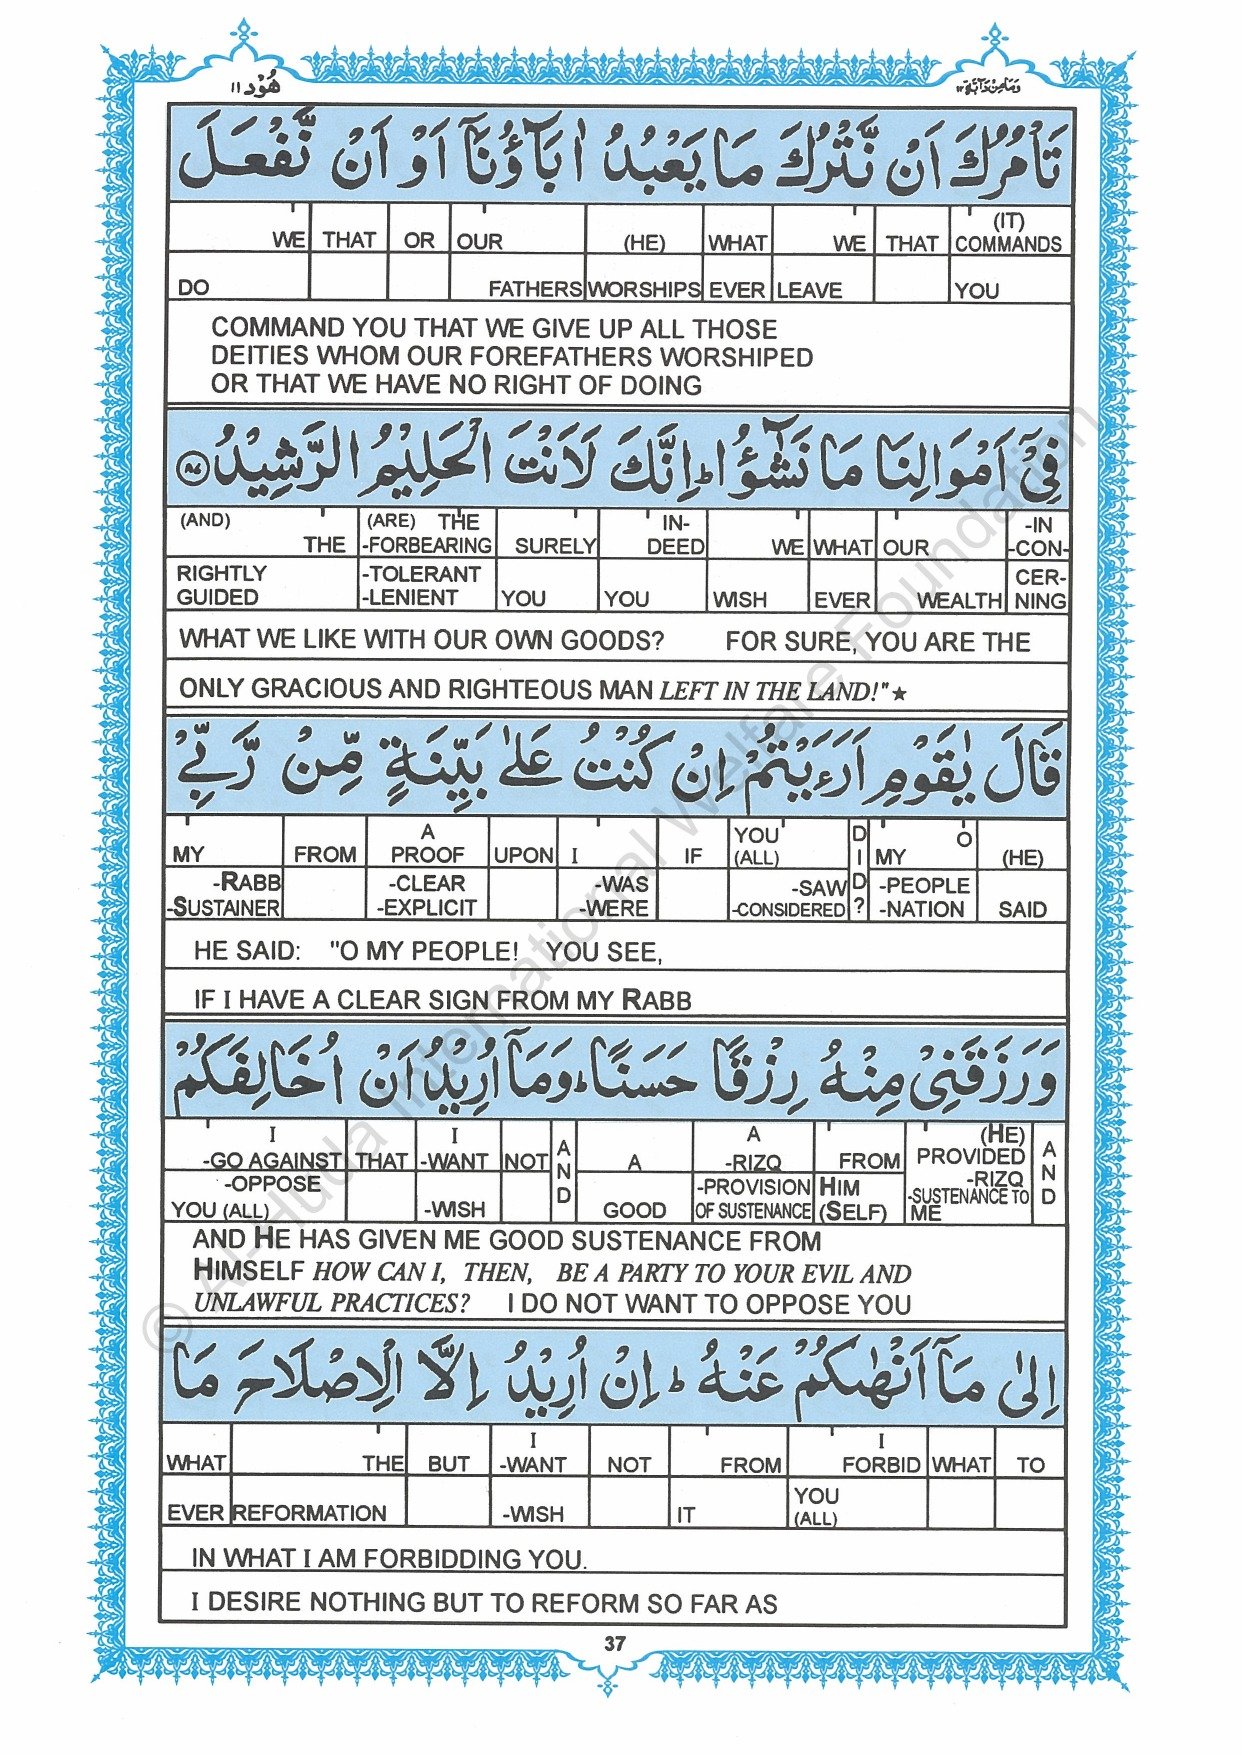 هُوْد ١١
وَمَا مِنْ دَآبَّة ١٢
تَاْمُرُكَ اَنْ نَّتْرُكَ مَا يَعْبُدُ اٰبَآؤُنَآ اَوْ اَنْ نَّفْعَلَ
WE THAT OR OUR (HE) WHAT WE THAT (IT) COMMANDS
DO FATHERS WORSHIPS EVER LEAVE YOU
COMMAND YOU THAT WE GIVE UP ALL THOSE
DEITIES WHOM OUR FOREFATHERS WORSHIPED
OR THAT WE HAVE NO RIGHT OF DOING
فِيْٓ اَمْوَالِنَا مَا نَشٰٓؤُا ؕ اِنَّكَ لَاَنْتَ الْحَلِيْمُ الرَّشِيْدُ ٨٧
(AND) THE (ARE) THE -FORBEARING SURELY IN- DEED WE WHAT OUR -IN -CON-
RIGHTLY GUIDED -TOLERANT -LENIENT YOU YOU WISH EVER WEALTH CER- NING
WHAT WE LIKE WITH OUR OWN GOODS? FOR SURE, YOU ARE THE
ONLY GRACIOUS AND RIGHTEOUS MAN LEFT IN THE LAND!"★
قَالَ يٰقَوْمِ اَرَءَيْتُمْ اِنْ كُنْتُ عَلٰى بَيِّنَةٍ مِّنْ رَّبِّيْ
MY FROM A PROOF UPON I IF YOU (ALL) DID? MY O (HE)
-RABB -SUSTAINER -CLEAR -EXPLICIT -WAS -WERE -SAW -CONSIDERED -PEOPLE -NATION SAID
HE SAID: "O MY PEOPLE! YOU SEE,
IF I HAVE A CLEAR SIGN FROM MY RABB
وَرَزَقَنِيْ مِنْهُ رِزْقًا حَسَنًا ؕ وَمَآ اُرِيْدُ اَنْ اُخَالِفَكُمْ
I -GO AGAINST THAT I -WANT NOT AND A A -RIZQ FROM (HE) PROVIDED AND
-OPPOSE YOU (ALL) -WISH GOOD -PROVISION OF SUSTENANCE HIM (SELF) -RIZQ -SUSTENANCE TO ME
AND HE HAS GIVEN ME GOOD SUSTENANCE FROM
HIMSELF HOW CAN I, THEN, BE A PARTY TO YOUR EVIL AND
UNLAWFUL PRACTICES? I DO NOT WANT TO OPPOSE YOU
اِلٰى مَآ اَنْهٰىكُمْ عَنْهُ ؕ اِنْ اُرِيْدُ اِلَّا الْاِصْلَاحَ مَا
WHAT THE BUT I -WANT NOT FROM I FORBID WHAT TO
EVER REFORMATION -WISH IT YOU (ALL)
IN WHAT I AM FORBIDDING YOU.
I DESIRE NOTHING BUT TO REFORM SO FAR AS
37
© Al-Huda International Welfare Foundation